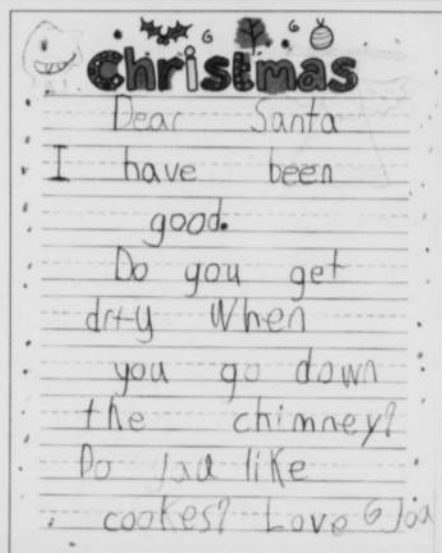 Christmas
Dear Santa
I have been
good.
Do you get
drty When
you go down
the chimney?
Do you like
cookes? Love